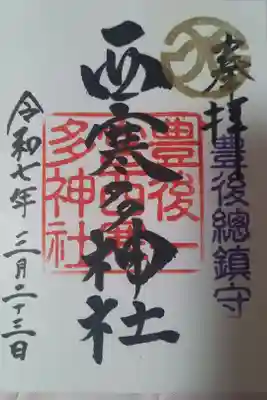 奉拝
豊後總鎮守
西寒多神社
豊後一
宮西寒
多神社
令和七年 三月二十三日